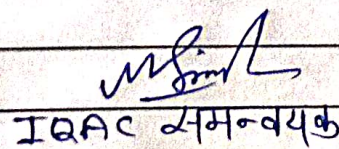 IQAC समन्वयक